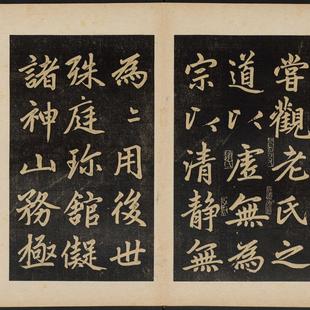 嘗觀老氏之
道以虛無為
宗以清靜無
為〻用後世
殊庭珍館儗
諸神山務極